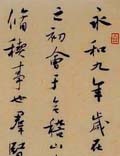 永和九年歲在
之初會于會稽山
脩稧事也羣賢